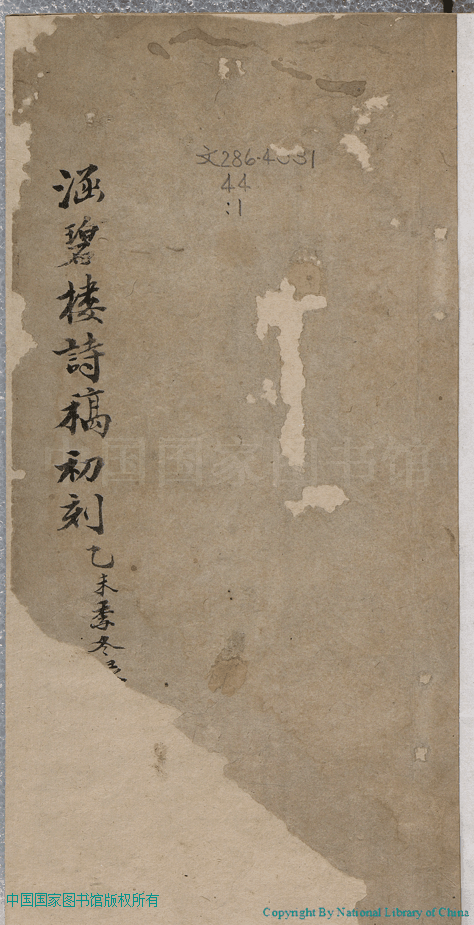 文286.4031
44
:1
涵碧楼詩稿初刻
乙未季冬
中国国家图书馆
中国国家图书馆版权所有
Copyright By National Library of China